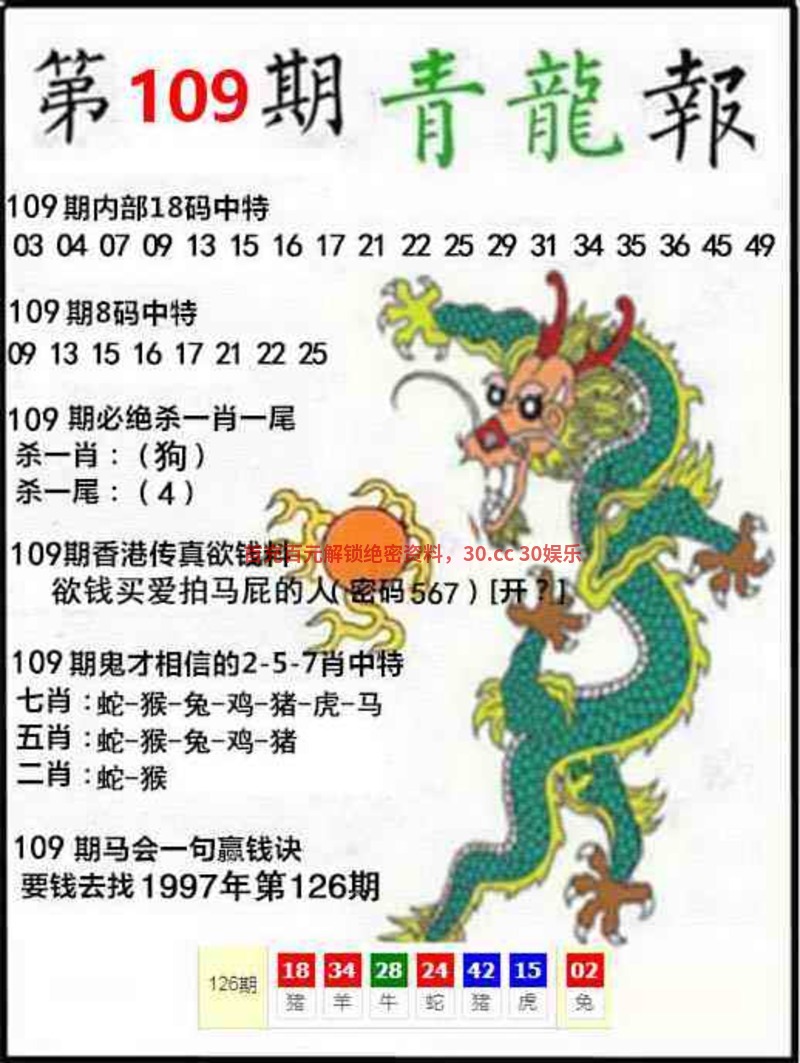 第109期青龍報
109期内部18码中特
03 04 07 09 13 15 16 17 21 22 25 29 31 34 35 36 45 49
109期8码中特
09 13 15 16 17 21 22 25
109 期必绝杀一肖一尾
杀一肖：（狗）
杀一尾：（4）
109期香港传真欲钱料
百元解锁绝密资料，30.cc 30娱乐
欲钱买爱拍马屁的人( 密码567 ) [开 ? ]
109期鬼才相信的2-5-7肖中特
七肖：蛇-猴-兔-鸡-猪-虎-马
五肖：蛇-猴-兔-鸡-猪
二肖：蛇-猴
109 期马会一句赢钱诀
要钱去找1997年第126期
126期 18 34 28 24 42 15 02
猪 羊 牛 蛇 猪 虎 兔